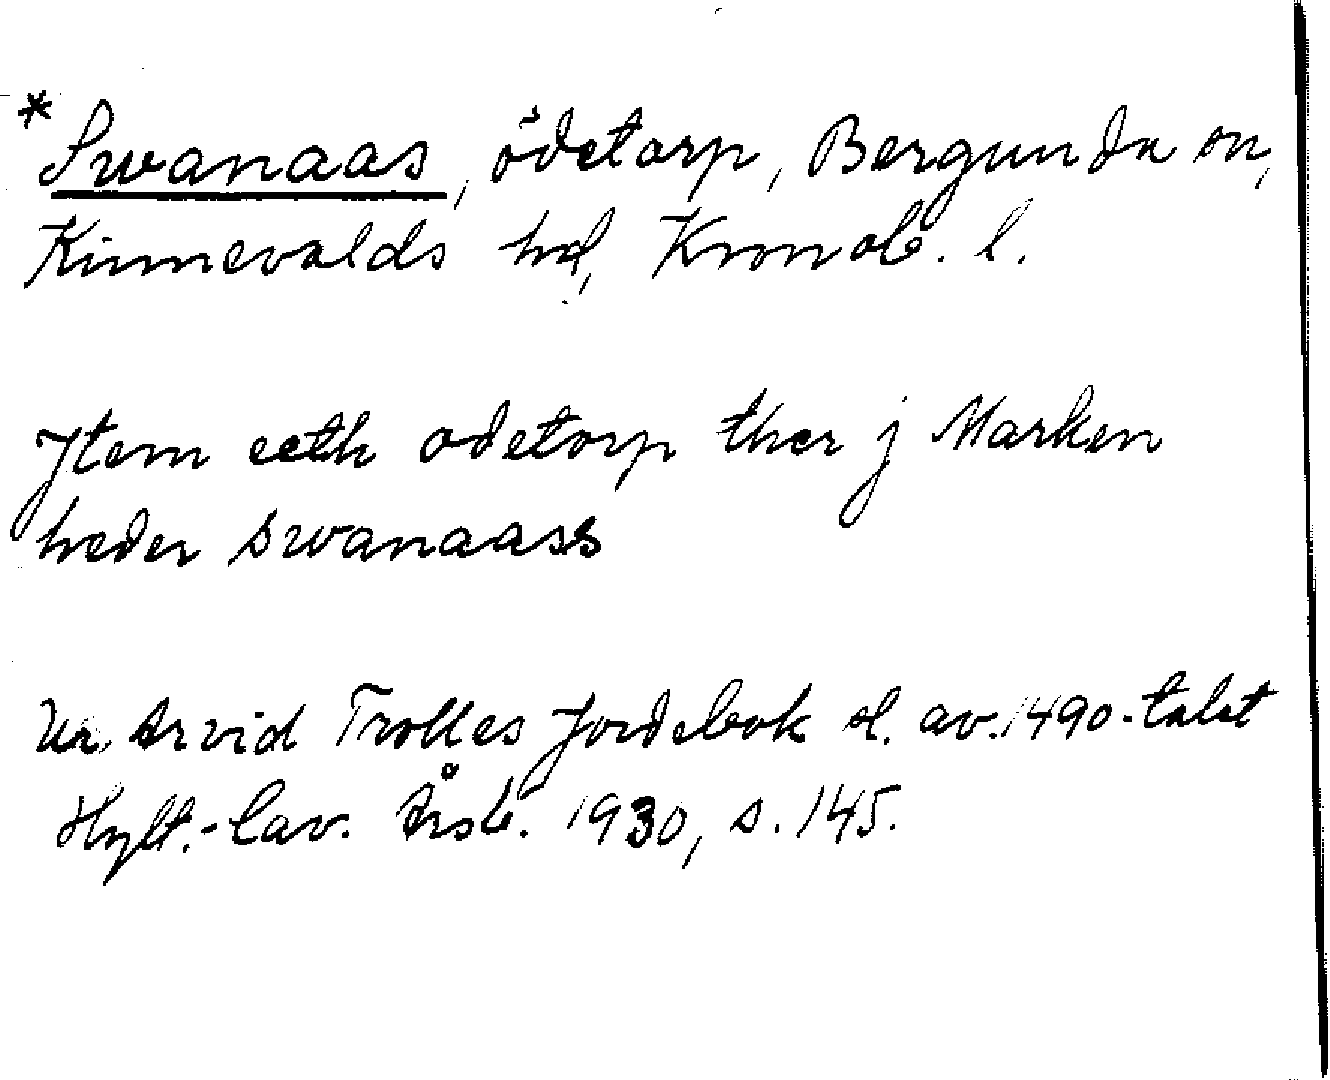 * Swanaas, ödetorp, Bergunda sn,
Kinnevalds hd, Kronob. l.
Jtem eeth odetorp ther j Marken
heder swanaass
Ur Arvid Trolles Jordebok sl. av 1490-talet
Hylt.-Cav. Årsb. 1930, s. 145.